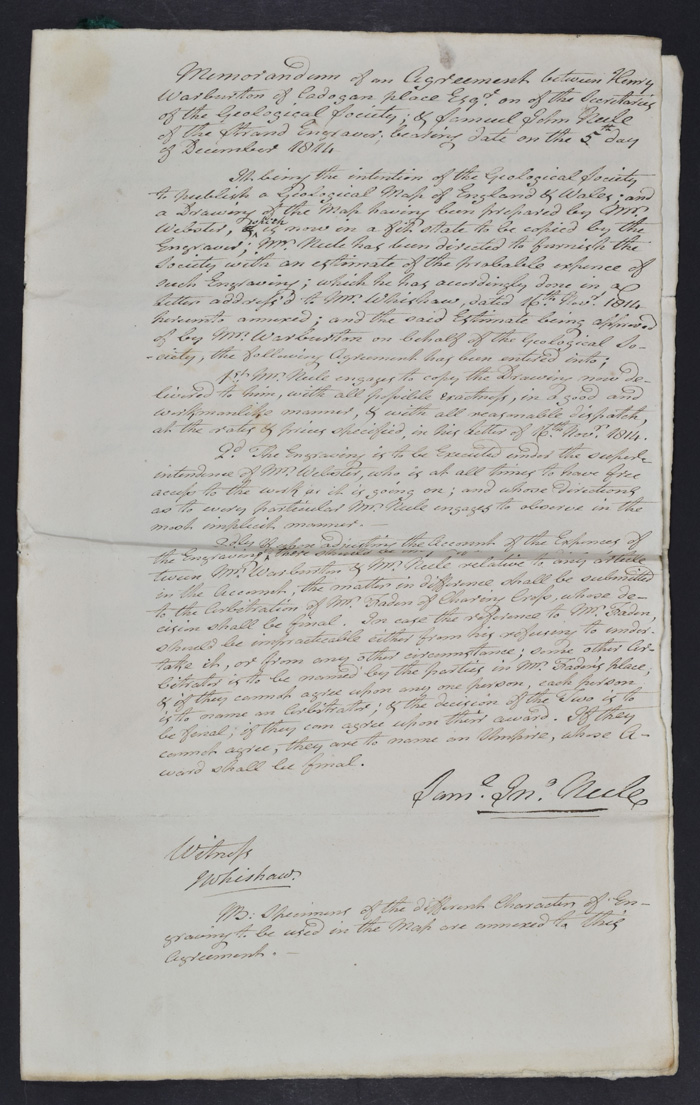 Memorandum of an Agreement between Henry
Warburton of Cadogan place Esqr. on of the Secretaries
of the Geological Society; & Samuel John Neele
of the Strand Engraver; bearing date on the 5th day
of December 1814
It being the intention of the Geological Society
to publish a Geological Map of England & Wales; and
a Drawing of the Map having been prepared by Mr.
Webster, which is now in a fit state to be copied by the
Engraver; Mr. Neele has been directed to furnish the
Society with an estimate of the probable expence of
such Engraving; which he has accordingly done in a
letter address'd to Mr. Whishaw, dated 16th Novr. 1814
hereunto annexed; and the said Estimate being approved
of by Mr. Warburton on behalf of the Geological So-
-ciety, the following Agreement has been entered into;
1st. Mr. Neele engages to copy the Drawing now de-
livered to him, with all possible exactness, in a good and
workmanlike manner, & with all reasonable dispatch,
at the rates & prices specified, in his letter of 16th Novr. 1814.
2d. The Engraving is to be Executed under the super-
intendence of Mr. Webster, who is at all times to have free
access to the work as it is going on; and whose directions
as to every particular Mr. Neele engages to observe in the
most implicit manner. —
3dly If upon adjusting the Account of the Expences of
the Engraving there should be any be-
tween Mr. Warburton & Mr. Neele relative to any article
in the Account, the matter in difference shall be submitted
to the Arbitration of Mr. Faden of Charing Cross, whose de-
cision shall be final. In case the reference to Mr. Faden,
should be impracticable either from his refusing to under-
take it, or from any other circumstance; some other Ar-
bitrator is to be named by the parties in Mr. Faden's place;
& if they cannot agree upon any one person, each person
is to name an Arbitrator; & the decision of the Two is to
be final; if they can agree upon their award. If they
cannot agree, they are to name an Umpire, whose A-
ward shall be final.
Saml. Jno. Neele
Witness
J Whishaw.
NB: Specimens of the different Character of En-
graving to be used in the Map are annexed to this
Agreement. —